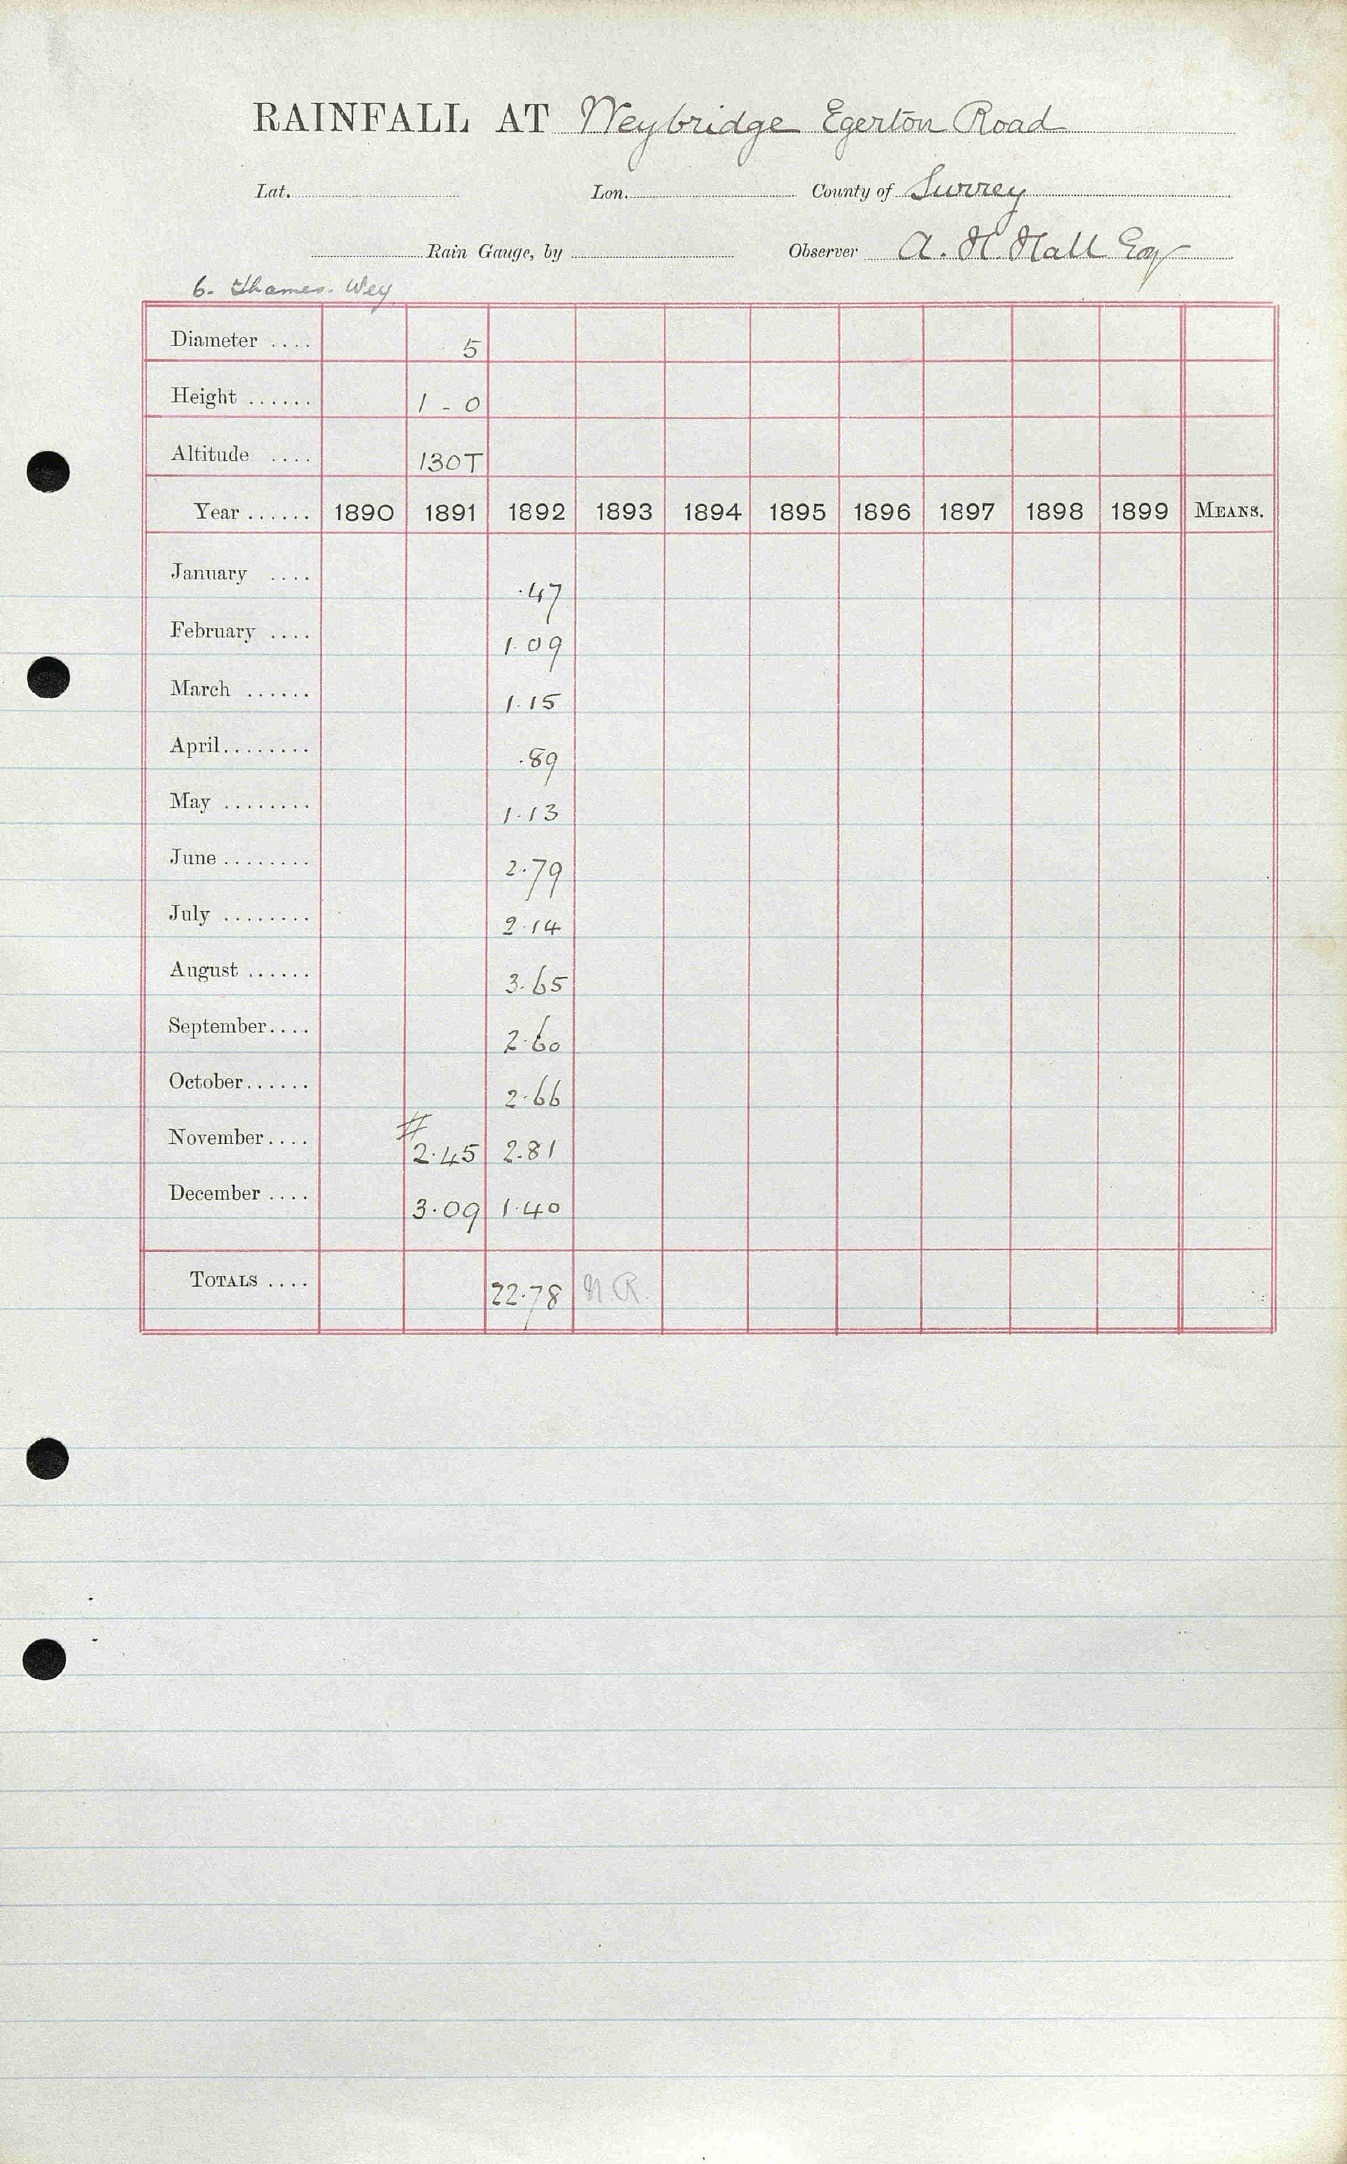 RAINFALL AT Weybridge Egerton Road
Lat. Lon. County of Surrey
Rain Gauge, by Observer A. H. Hall Esq
6. Thames. Wey
Diameter .... 5
Height ...... 1 - 0
Altitude .... 130T
Year ...... 1890 1891 1892 1893 1894 1895 1896 1897 1898 1899 MEANS.
January .... .47
February .... 1.09
March ...... 1.15
April ........ .89
May ........ 1.13
June ........ 2.79
July ........ 2.14
August ...... 3.65
September.... 2.60
October...... 2.66
November.... # 2.45 2.81
December .... 3.09 1.40
TOTALS .... 22.78 N.R.